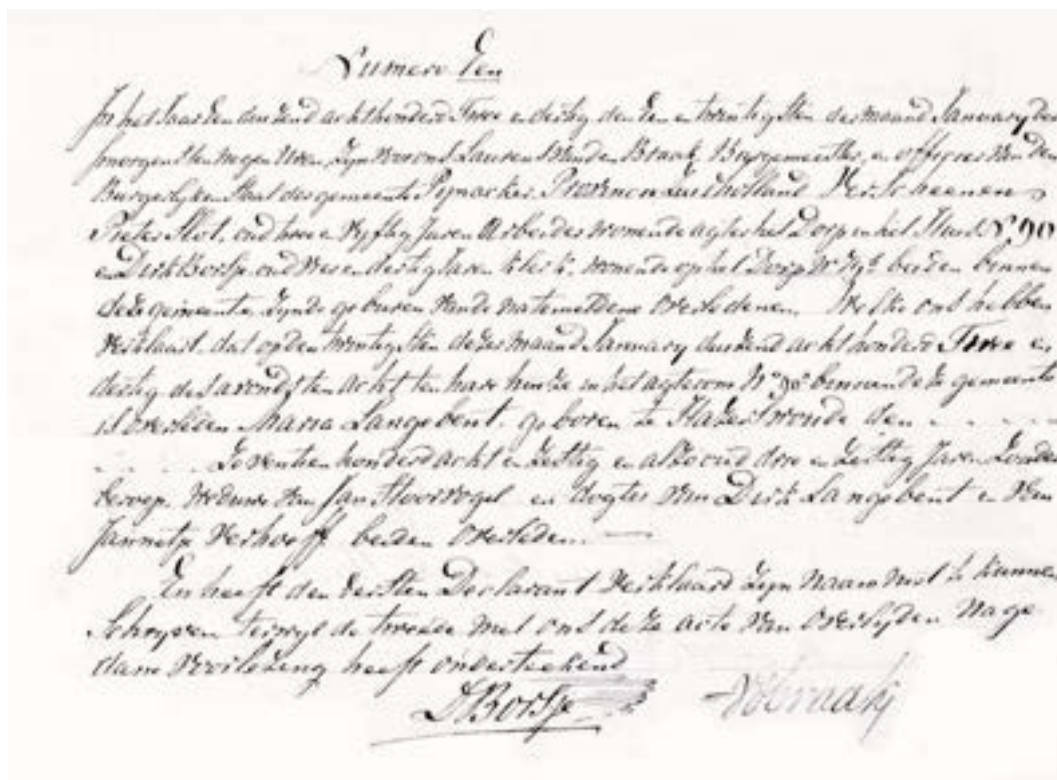 Numero Een
In het Jaar Een duizend achthonderd Twee en dertig den Een en twintigsten der maand January des
smorgens ten negen uren, Zyn voor ons Laurens van den Braak, Burgemeester, en officier van den
Burgerlyken Staat der gemeente Pijnacker Provincie Zuidholland Verscheenen
Pieter Slot, oud twee en vyftig Jaren Arbeider wonende agter het Dorp in het Huis N 90
en Dirk Borsje oud en dertig Jaren klerk, wonende op het Dorp beiden binnen
deze gemeente, Zynde geburen van de natemeldene overledene. Welke ons hebben
verklaard, dat op den twintigsten dezer maand January duizend acht honderd Twee en
dertig des avonds ten acht ten haar huize in het agterom N° 90 binnen deze gemeente
is overleden Maria Langebent, geboren te Hazerswoude den
Zeventien honderd acht en Zestig en alzo oud drie en Zestig Jaren Zonder
beroep. Weduwe van Jan Hoorvogel en dogter van Dirk Langebent en van
Jannetje Verhoeff beiden overleden.
En heeft den Eersten Declarant verklaard Zyn naam niet te kunnen
Schryven terwyl de tweede met ons deze acte van overlyden na ge
dane voorlezing heeft onderteekend
D Borsje